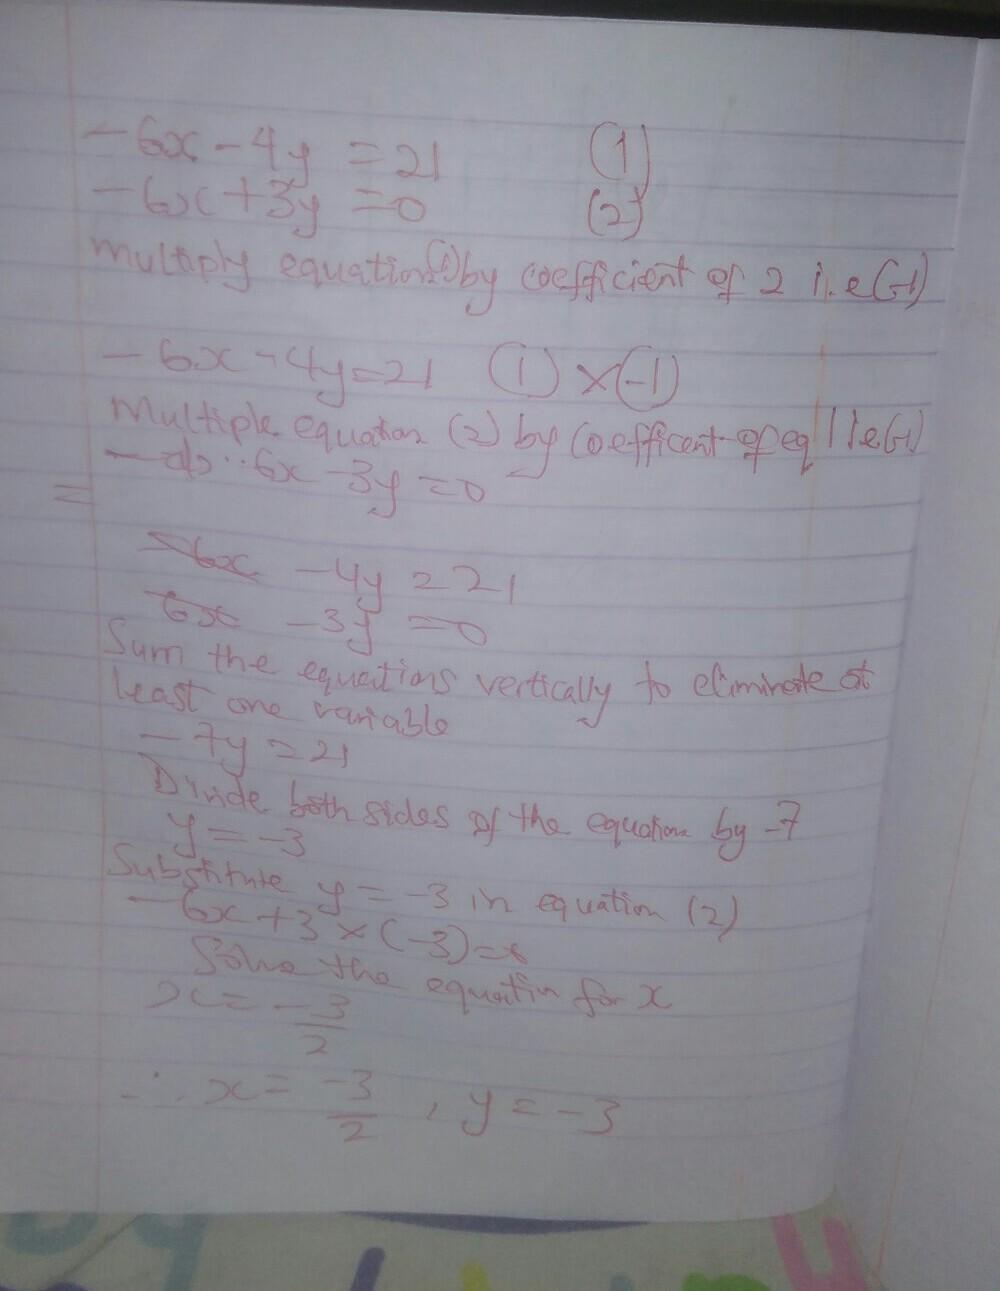 -6x - 4y = 21 (1)
-6x + 3y = 0 (2)
multiply equation (1) by coefficient of 2 i.e (-1)
- 6x - 4y = 21 (1) × (-1)
Multiple equation (2) by Coefficent of eq 1 i.e (-1)
6x - 3y = 0
=
-6x - 4y = 21
6x - 3y = 0
Sum the equations vertically to eliminate at
least one variable
- 7y = 21
Divide both sides of the equation by -7
y = -3
Substitute y = -3 in equation (2)
- 6x + 3 × (-3) = 0
Solve the equatin for x
x = -3/2
∴ x = -3/2 , y = -3